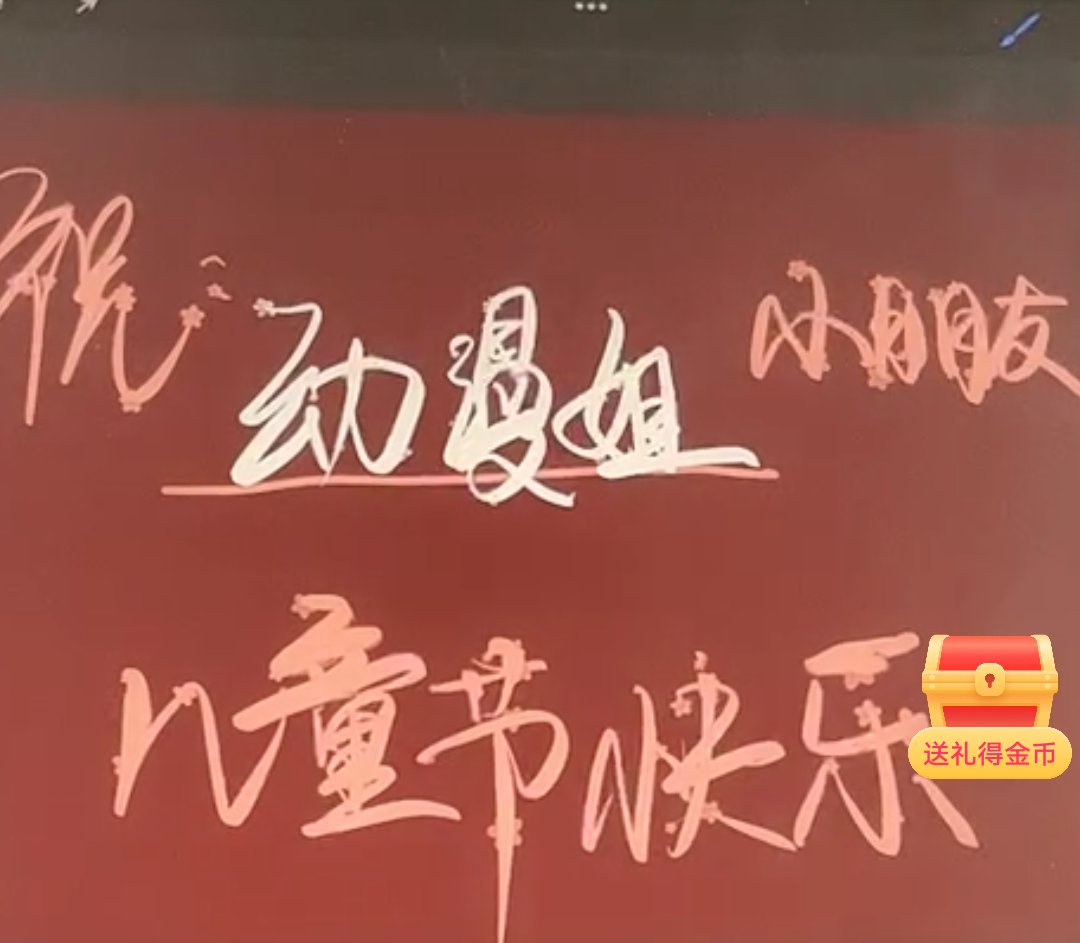 祝: 动漫姐 小朋友
儿童节快乐
送礼得金币